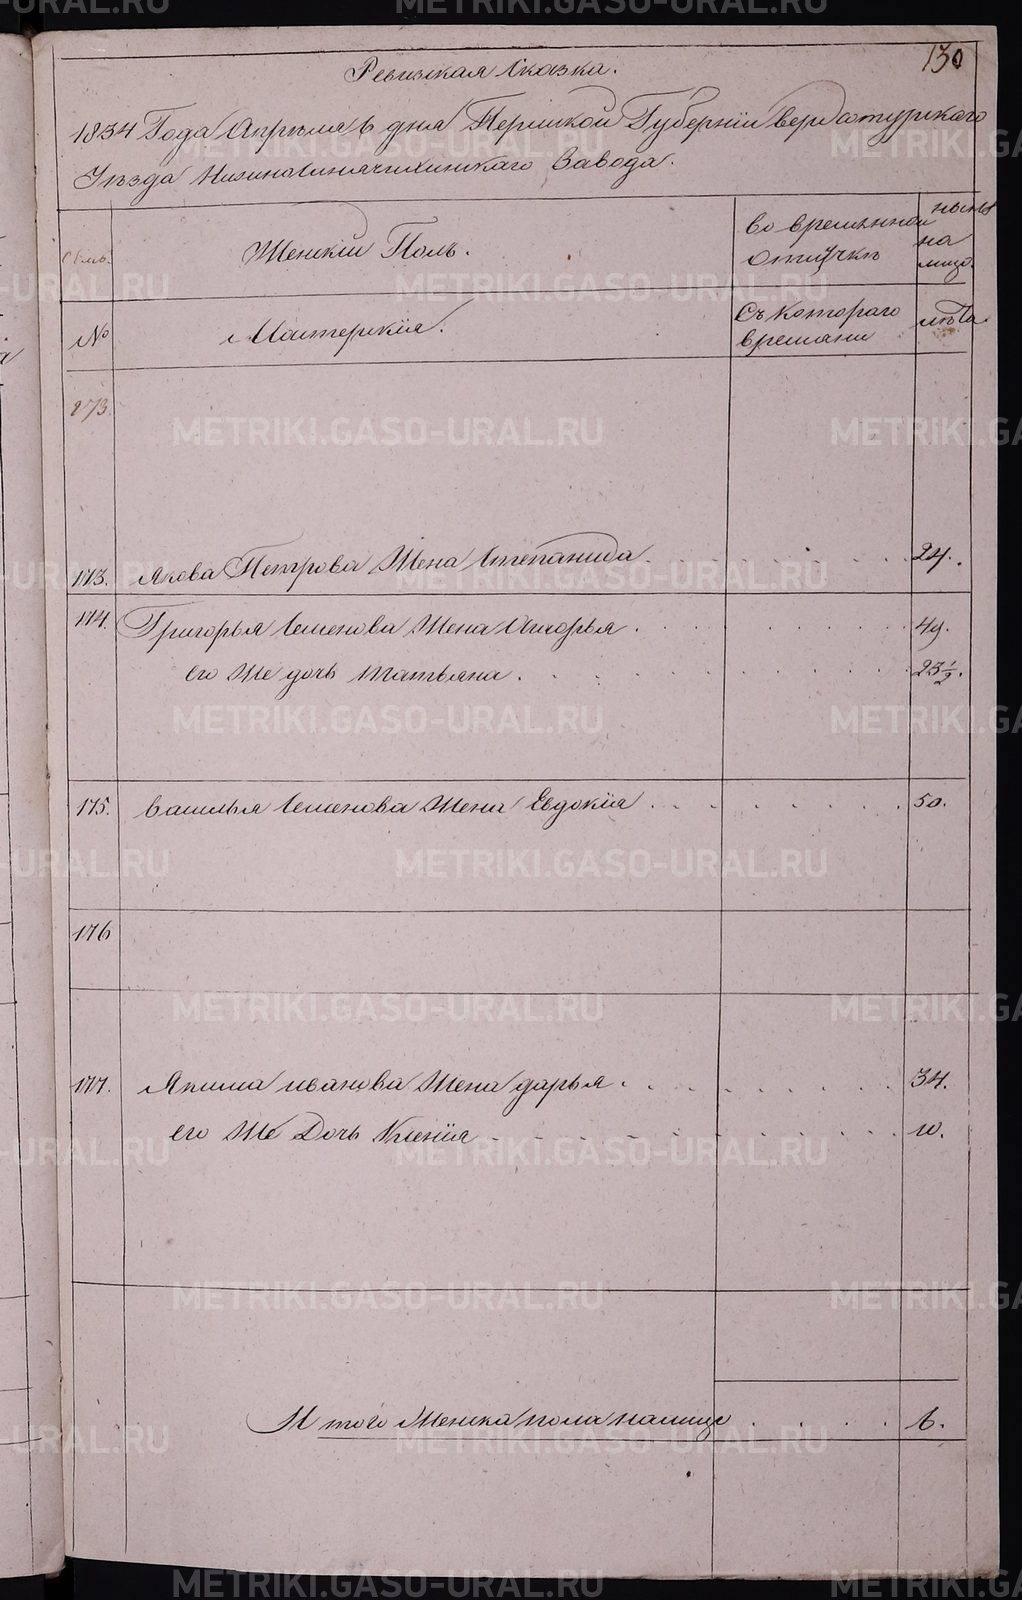 130
Ревизкая Сказка.
1834 Года Апреля 6 дня Пермской Губернiи Верхотурскаго
Уезда Нижносинячихинскаго Завода.
Семь.
Женскiй Полъ.
во временной
отлучкѣ
нынѣ
на
лицо.
№
Мастерскiя.
Съ котораго
времяни
лѣта
273.
173. Якова Петрова Жена Степанида 24.
174. Григорья Семенова Жена Огафья 49.
его Же дочь Татьяна 23 1/2.
175. Василья Семенова Жена Евдокiя 50.
176
177. Якима иванова Жена дарья 34.
его Же Дочь Ксенiя 10.
И того Женска пола налицо 6.
METRIKI.GASO-URAL.RU